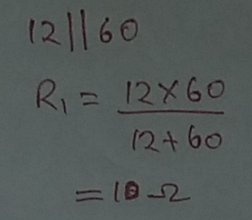 12||60
R₁ = 12×60 / 12+60
= 10 Ω